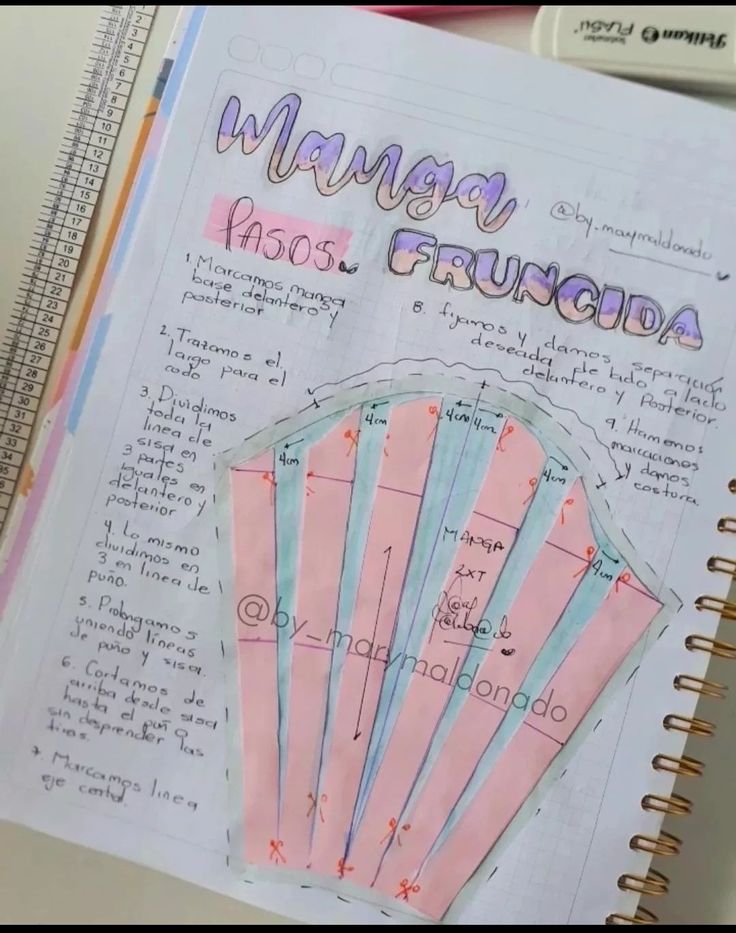 Pelikan
FLASH
Manga
@by.maymaldonado
FRUNCIDA
PASOS
1. Marcamos manga
base delantero y
posterior
2. Trazamos el
largo para el
codo
3. Dividimos
toda la
linea de
sisa en
3 partes
iguales en
delantero y
posterior
4. Lo mismo
dividimos en
3 en linea de
puño.
5. Prolongamos
uniendo líneas
de puño y sisa.
6. Cortamos de
arriba desde sisa
hasta el puño
sin desprender las
tiras.
7. Marcamos linea
eje central.
8. fijamos y damos separación
deseada de lado a lado
delantero y Posterior.
9. Hacemos
marcaciones
y damos
costura.
4cm
4cm
4cm
4cm
4cm
4cm
MANGA
2XT
@by_marymaldonado
1
2
3
4
5
6
7
8
9
10
11
12
13
14
15
16
17
18
19
20
21
22
23
24
25
26
27
28
29
30
31
32
33
34
35